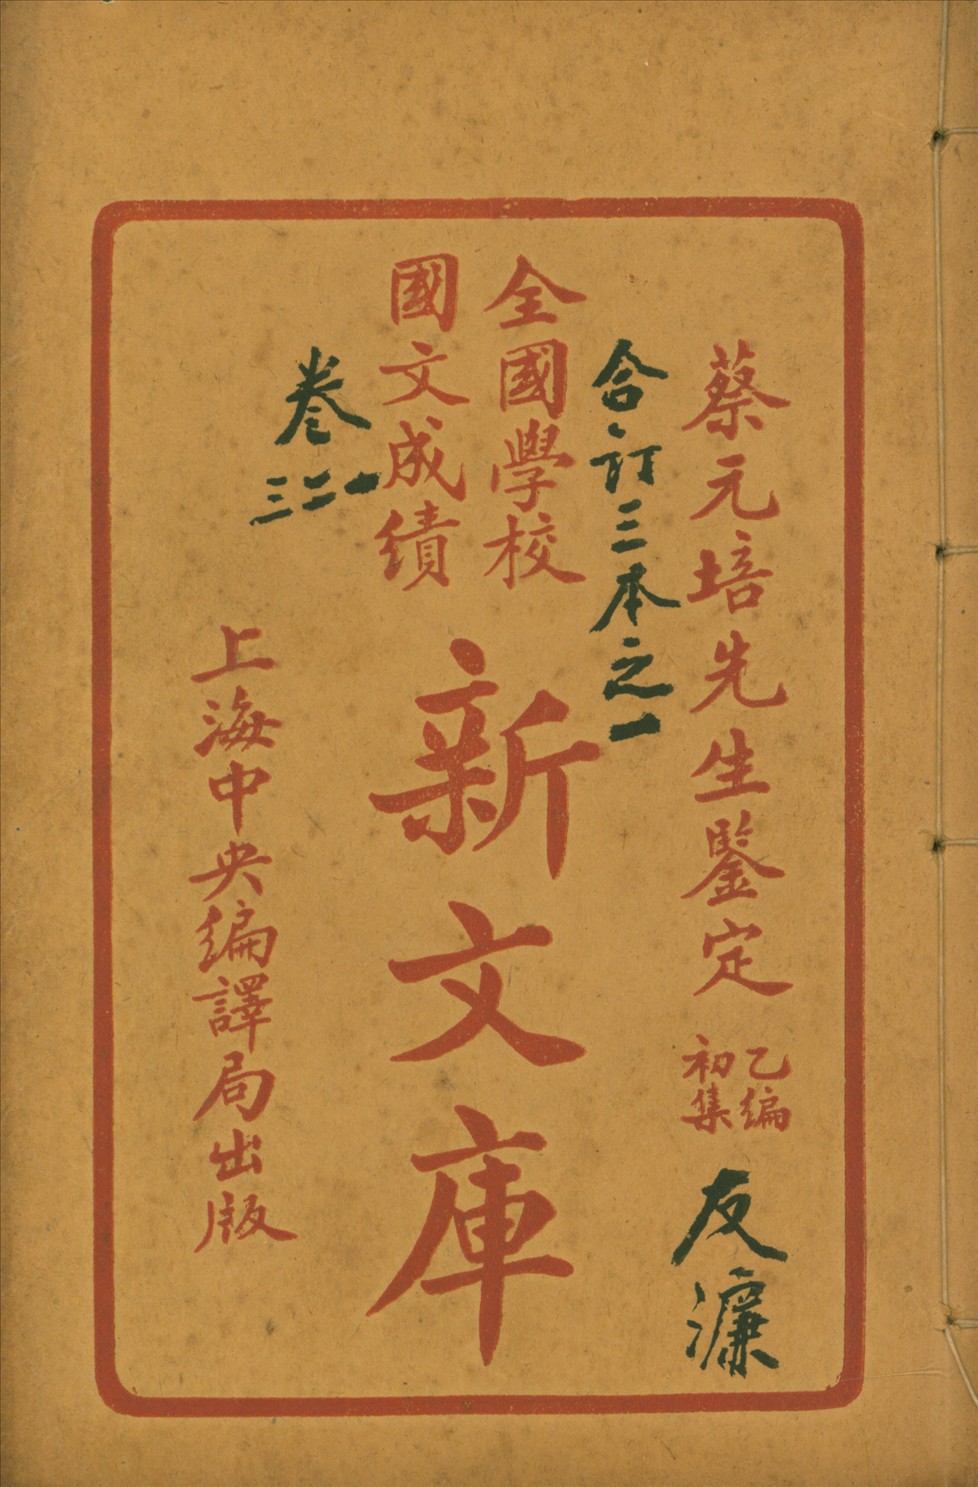 蔡元培先生鑒定
乙編
初集
友濂
合訂三本之一
全國學校
國文成績
新文庫
卷一二三
上海中央編譯局出版